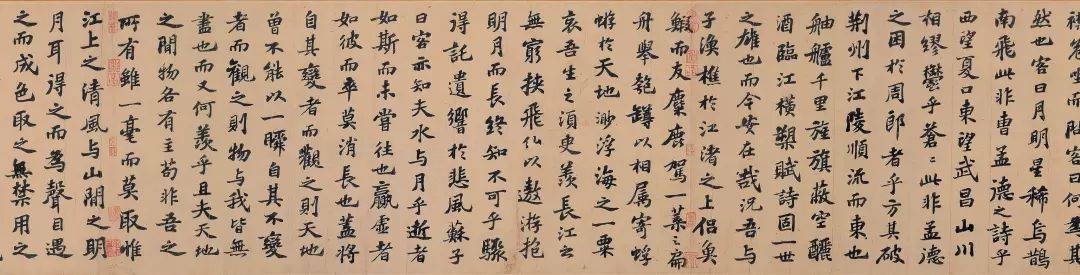 危坐而問客曰何為其
然也客曰月明星稀烏鵲
南飛此非曹孟德之詩乎
西望夏口東望武昌山川
相繆鬱乎蒼〻此非孟德
之困於周郎者乎方其破
荊州下江陵順流而東也
舳艫千里旌旗蔽空釃
酒臨江橫槊賦詩固一世
之雄也而今安在哉況吾與
子漁樵於江渚之上侶魚
鰕而友麋鹿駕一葉之扁
舟舉匏罇以相属寄蜉
蝣於天地渺浮海之一粟
哀吾生之須臾羨長江之
無窮挾飛仙以遨游抱
明月而長終知不可乎驟
得託遺響於悲風蘇子
曰客亦知夫水与月乎逝者
如斯而未嘗往也贏虛者
如彼而卒莫消長也蓋將
自其變者而觀之則天地
曾不能以一瞬自其不變
者而觀之則物与我皆無
盡也而又何羨乎且夫天地
之間物各有主苟非吾之
所有雖一毫而莫取惟
江上之清風与山間之明
月耳得之而為聲目遇
之而成色取之無禁用之